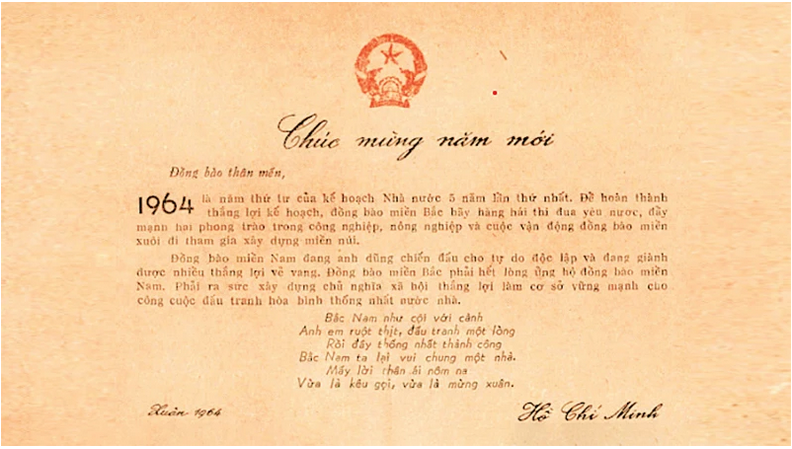 Chúc mừng năm mới
Đồng bào thân mến,
1964 là năm thứ tư của kế hoạch Nhà nước 5 năm lần thứ nhất. Để hoàn thành
thắng lợi kế hoạch, đồng bào miền Bắc hãy hăng hái thi đua yêu nước, đẩy
mạnh hai phong trào trong công nghiệp, nông nghiệp và cuộc vận động đồng bào miền
xuôi đi tham gia xây dựng miền núi.
Đồng bào miền Nam đang anh dũng chiến đấu cho tự do độc lập và đang giành
được nhiều thắng lợi vẻ vang. Đồng bào miền Bắc phải hết lòng ủng hộ đồng bào miền
Nam. Phải ra sức xây dựng chủ nghĩa xã hội thắng lợi làm cơ sở vững mạnh cho
công cuộc đấu tranh hòa bình thống nhất nước nhà.
Bắc Nam như cội với cành
Anh em ruột thịt, đấu tranh một lòng
Rồi đây thống nhất thành công
Bắc Nam ta lại vui chung một nhà.
Mấy lời thân ái nôm na
Vừa là kêu gọi, vừa là mừng xuân.
Xuân 1964
Hồ Chí Minh